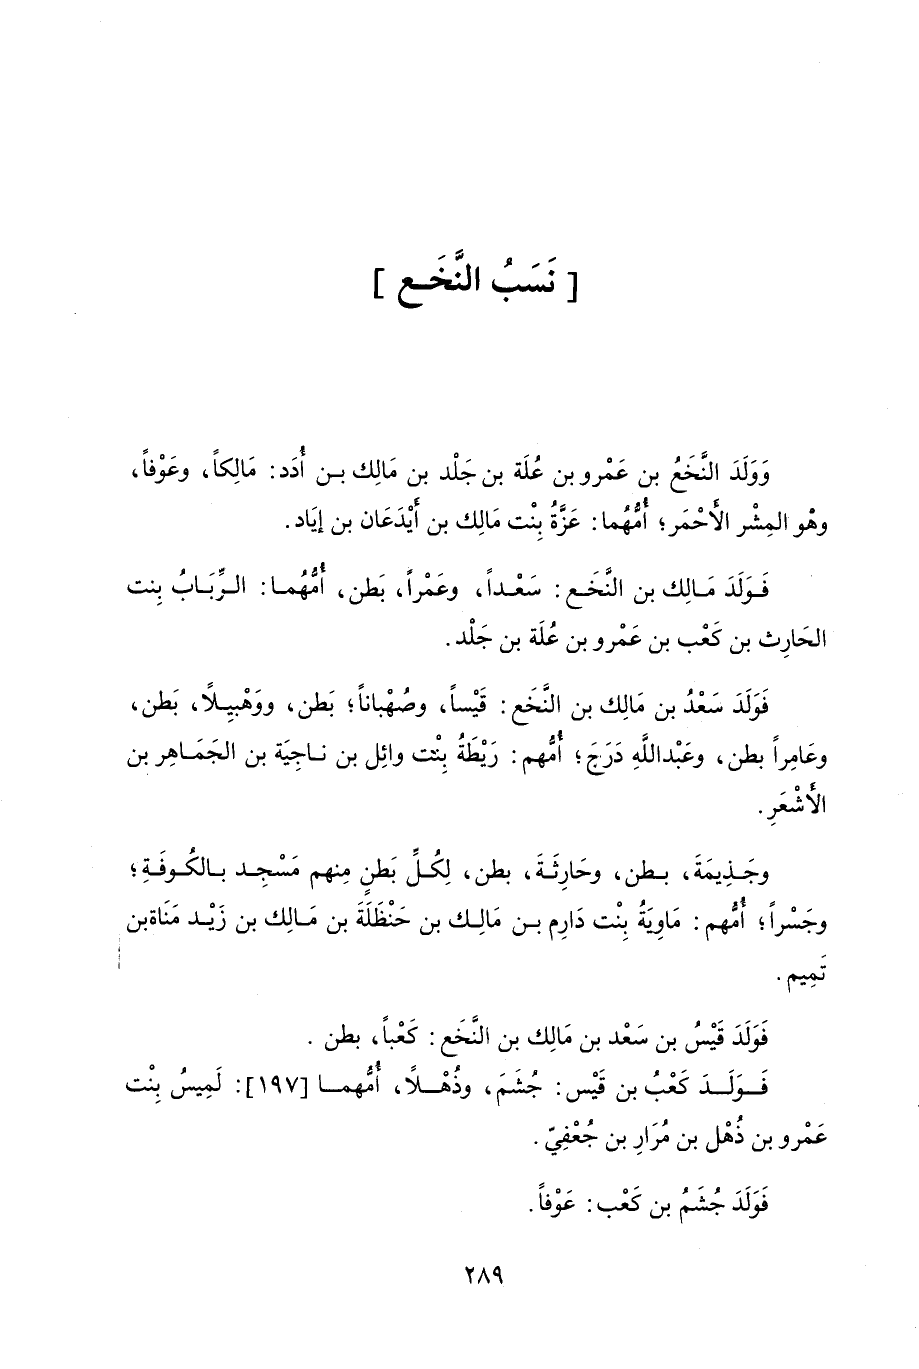 [ نَسَبُ النَّخَع ]
وَوَلَدَ النَّخَعُ بن عَمْرو بن عُلَة بن جَلْد بن مَالِك بن أُدَد: مَالِكاً، وعَوْفاً،
وهُو المِشْر الأَحْمَر؛ أُمُّهُما: عَزَّةُ بِنْت مَالِك بن أَيْدَعَان بن إيَاد.
فَوَلَدَ مَالِك بن النَّخَع: سَعْداً، وعَمْراً، بَطن، أُمُّهُما: الرِّبَابُ بِنت
الحَارِث بن كَعْب بن عَمْرو بن عُلَة بن جَلْد.
فَوَلَدَ سَعْدُ بن مَالِك بن النَّخَع: قَيْساً، وصُهْبَاناً؛ بَطن، ووَهْبِيلاً، بَطن،
وعَامِراً بطن، وعَبْدالله دَرَجَ؛ أُمُّهم: رَيْطَةُ بِنْت وائِل بن نـاجِيَة بن الجَمَاهِر بن
الأَشْعَرِ.
وجَذِيمَةَ، بطن، وحَارِثَةَ، بطن، لِكُلِّ بَطنٍ مِنهم مَسْجِد بالكُوفَةِ؛
وجَسْراً؛ أُمُّهم: مَاوِيَةُ بِنْت دَارِم بن مَالِك بن حَنْظَلَةَ بن مَالِك بن زَيْد مَنَاةبن
تَمِيم.
فَوَلَدَ قَيْسُ بن سَعْد بن مَالِك بن النَّخَع: كَعْباً، بطن .
فَوَلَدَ كَعْبُ بن قَيْس: جُشَمَ، وذُهْلاً، أُمُّهما [١٩٧]: لَمِيسُ بِنْت
عَمْرو بن ذُهْل بن مُرَارِ بن جُعْفِيّ.
فَوَلَدَ جُشَمُ بن كَعْب: عَوْفاً.
٢٨٩